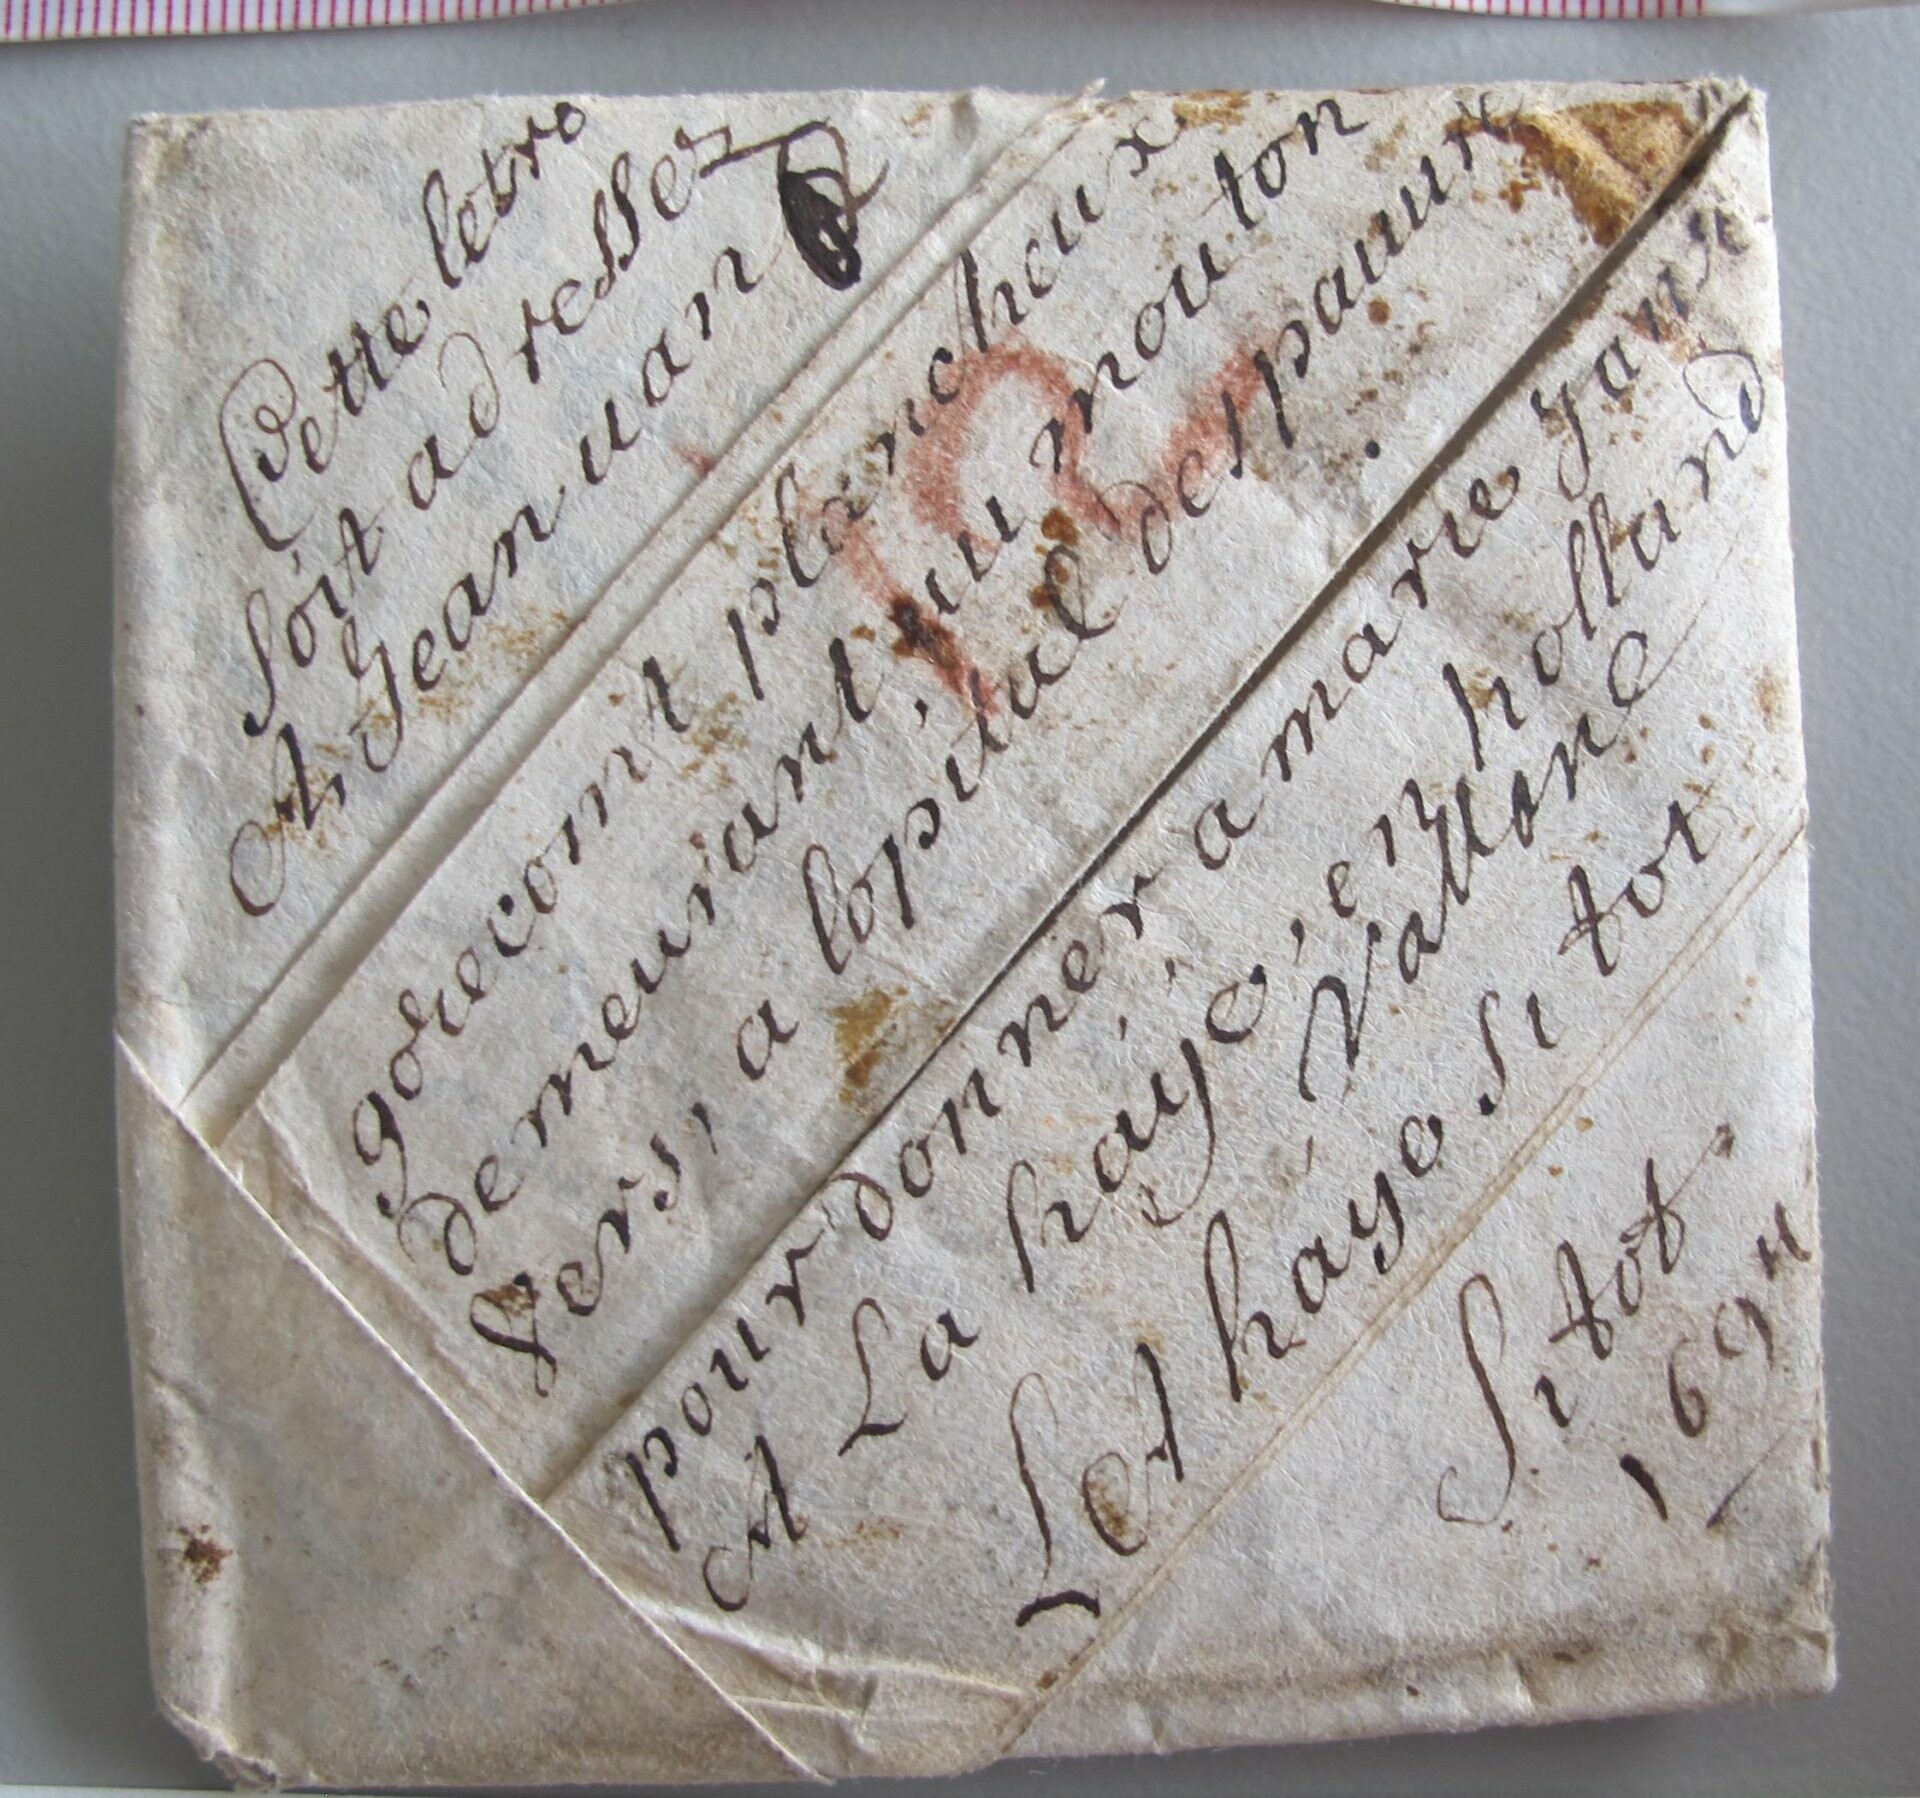 Cette letre
soit ad resser
A Jean uan
godecont plancheux
demeurant, uu mouton
Vers, a lopital desspauure
pour donner a marie Jans
A La haÿe, en holland
Let hayo si tot
Si tot
169